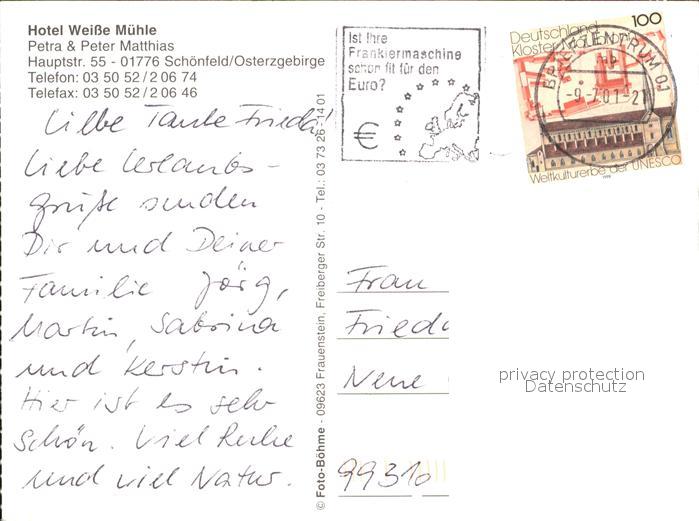 Hotel Weiße Mühle
Petra & Peter Matthias
Hauptstr. 55 - 01776 Schönfeld/Osterzgebirge
Telefon: 03 50 52 / 2 06 74
Telefax: 03 50 52 / 2 06 46
Liebe Tante Frieda!
Liebe Urlaubs-
grüße senden
Dir und Deiner
Familie Jörg,
Martin, Sabrina
und Kerstin.
Hier ist es sehr
schön. Viel Ruhe
und viel Natur.
© Foto-Böhme - 09623 Frauenstein, Freiberger Str. 10 - Tel.: 03 73 26 - 14 01
Ist Ihre
Frankiermaschine
schon fit für den
Euro?
€
Deutschland 100
Kloster Maulbronn
BRIEFZENTRUM 01
-9.-7.01-21
Weltkulturerbe der UNESCO
1998
Frau
Fried
Neue
99310
privacy protection
Datenschutz